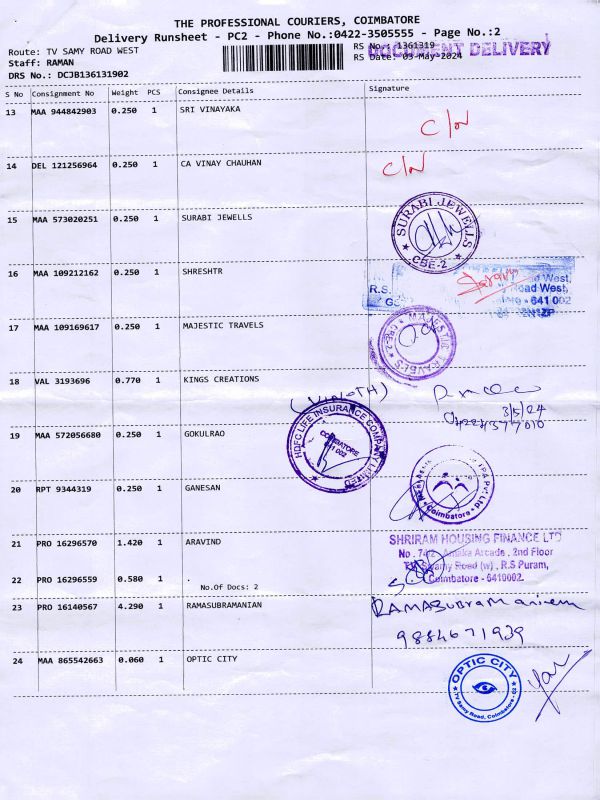 THE PROFESSIONAL COURIERS, COIMBATORE
Delivery Runsheet - PC2 - Phone No.:0422-3505555 - Page No.:2
Route: TV SAMY ROAD WEST
Staff: RAMAN
DRS No.: DCJB136131902
RS No.: 1361319
RS Date: 03-May-2024
DOCUMENT DELIVERY
S No Consignment No Weight PCS Consignee Details Signature
13 MAA 944842903 0.250 1 SRI VINAYAKA
C/N
14 DEL 121256964 0.250 1 CA VINAY CHAUHAN
C/N
15 MAA 573020251 0.250 1 SURABI JEWELLS
SURABI JEWELLS
CBE-2
16 MAA 109212162 0.250 1 SHRESHTR
R.S.
Road West,
Road West,
641 002
17 MAA 109169617 0.250 1 MAJESTIC TRAVELS
MAJESTIC TRAVELS
CBE-2
18 VAL 3193696 0.770 1 KINGS CREATIONS
3/5/24
19 MAA 572056680 0.250 1 GOKULRAO
HDFC LIFE INSURANCE COMPANY LIMITED
COIMBATORE
641 002
20 RPT 9344319 0.250 1 GANESAN
TPA Pvt Ltd
Coimbatore
21 PRO 16296570 1.420 1 ARAVIND
SHRIRAM HOUSING FINANCE LTD
Arcade, 2nd Floor
Swamy Road (w), R.S Puram,
Coimbatore - 641002.
22 PRO 16296559 0.580 1 .
No.Of Docs: 2
23 PRO 16140567 4.290 1 RAMASUBRAMANIAN
RAMASUBramaniem
9884671939
24 MAA 865542663 0.060 1 OPTIC CITY
OPTIC CITY
TV Samy Road, Coimbatore-02